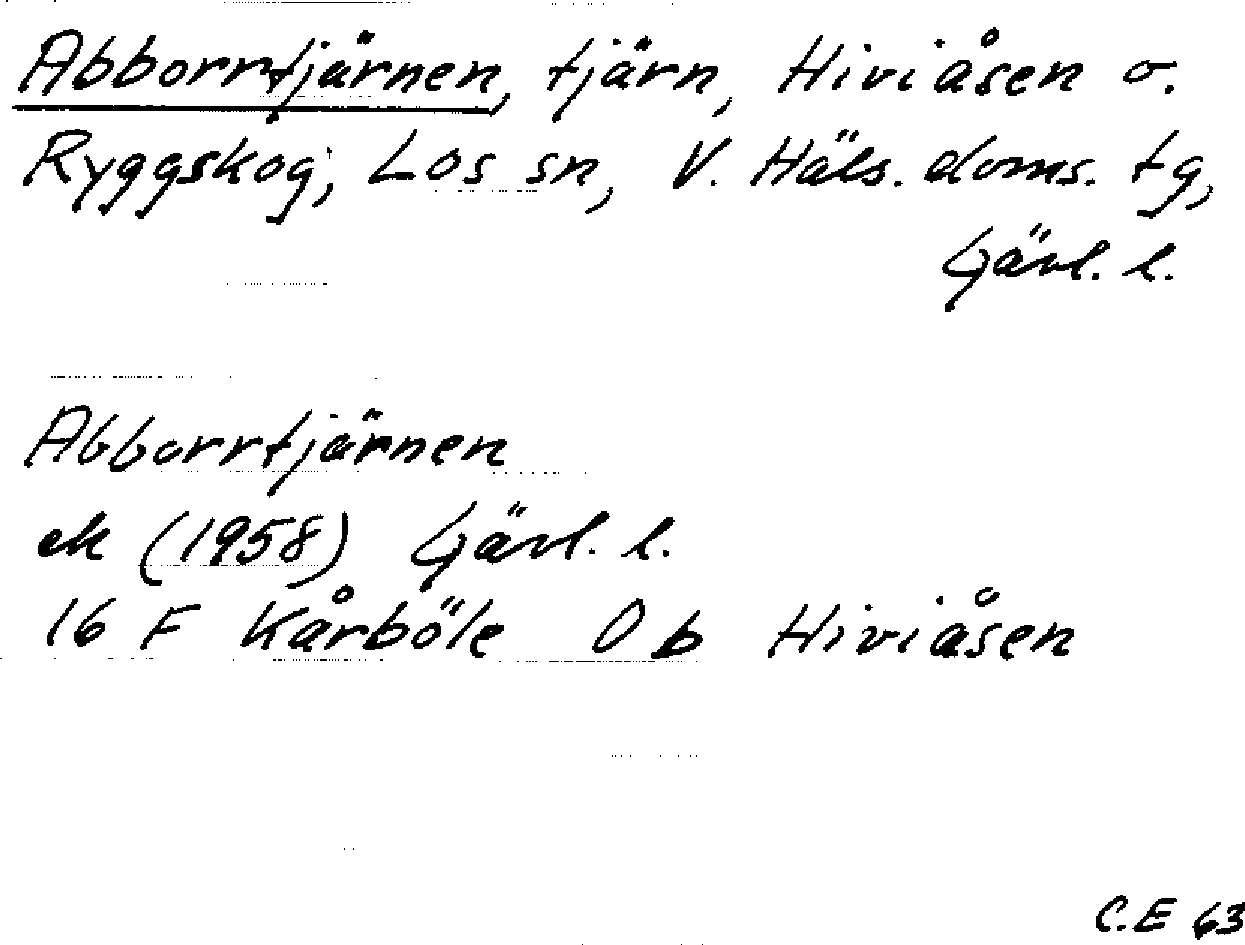 Abborrtjärnen, tjärn, Hiviåsen o.
Ryggskog, Los sn, V. Häls. doms. tg,
Gävl. l.
Abborrtjärnen
ek (1958) Gävl. l.
16 F Kårböle 0 b Hiviåsen
C.E 63